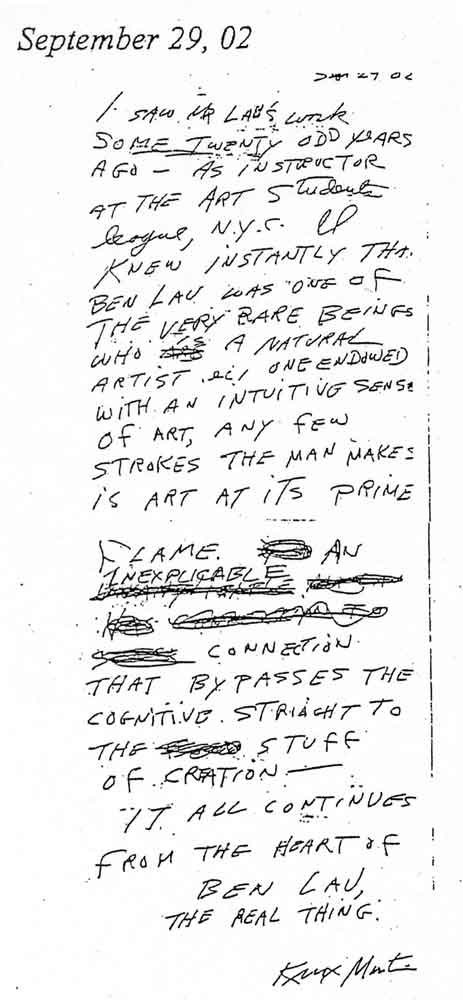 September 29, 02
Sep 27 02
I SAW MR LAU'S work
SOME TWENTY ODD YEARS
AGO — AS INSTRUCTOR
AT THE ART Students
league, N.Y.C. I
KNEW INSTANTLY THA
BEN LAU WAS ONE OF
THE VERY RARE BEINGS
WHO IS A NATURAL
ARTIST ONE ENDOWED
WITH AN INTUITIVE SENSE
OF ART, ANY FEW
STROKES THE MAN MAKES
IS ART AT ITS PRIME
FLAME. AN
INEXPLICABLE
CONNECTION
THAT BYPASSES THE
COGNITIVE STRIAGHT TO
THE STUFF
OF CREATION —
IT ALL CONTINUES
FROM THE HEART OF
BEN LAU,
THE REAL THING.
Knox Martin